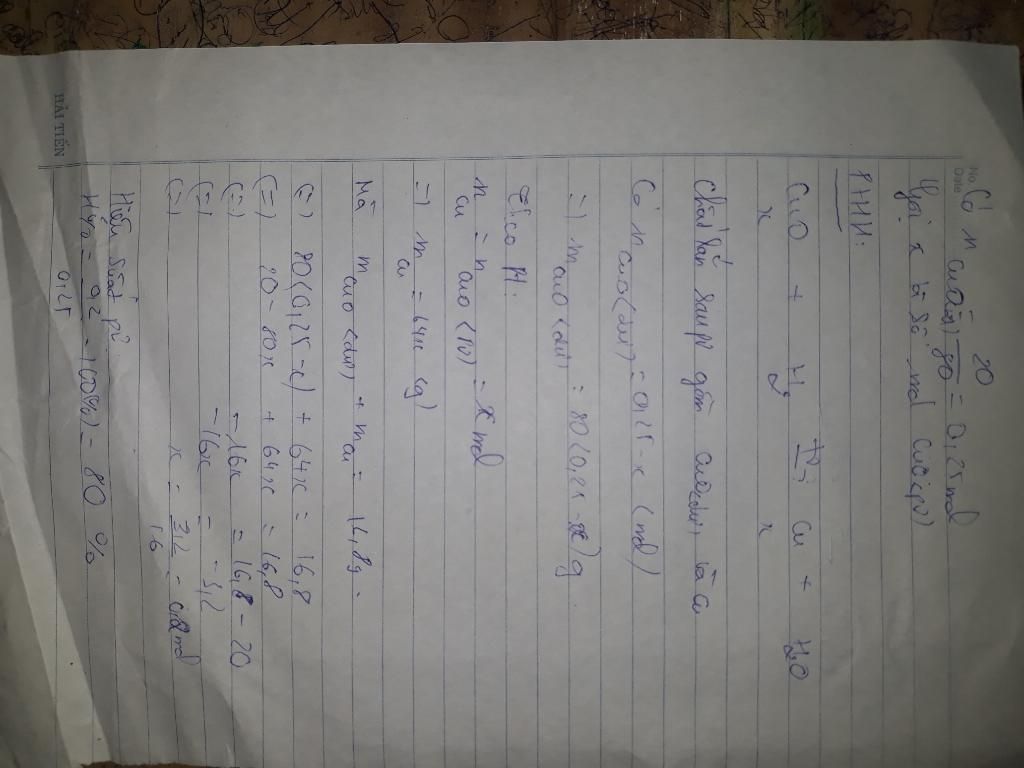 No.
Date
Có n CuO(bđ) = 20/80 = 0,25 mol
Gọi x là số mol CuO (pứ)
PTHH:
CuO + H2 t° Cu + H2O
x x
Chất rắn sau pứ gồm CuO(dư) và Cu
Có n CuO(dư) = 0,25 - x (mol)
=) m CuO(dư) = 80(0,25 - x)g
Theo pt:
n Cu = n CuO(pứ) = x mol
=) m Cu = 64x (g)
Mà m CuO(dư) + m Cu = 16,8g.
(=) 80(0,25 - x) + 64x = 16,8
(=) 20 - 80x + 64x = 16,8
(=) - 16x = 16,8 - 20
(=) - 16x = - 3,2
(=) x = 3,2/16 = 0,2 mol
Hiệu suất pứ:
H% = 0,2/0,25 . 100% = 80 %
HẢI TIẾN